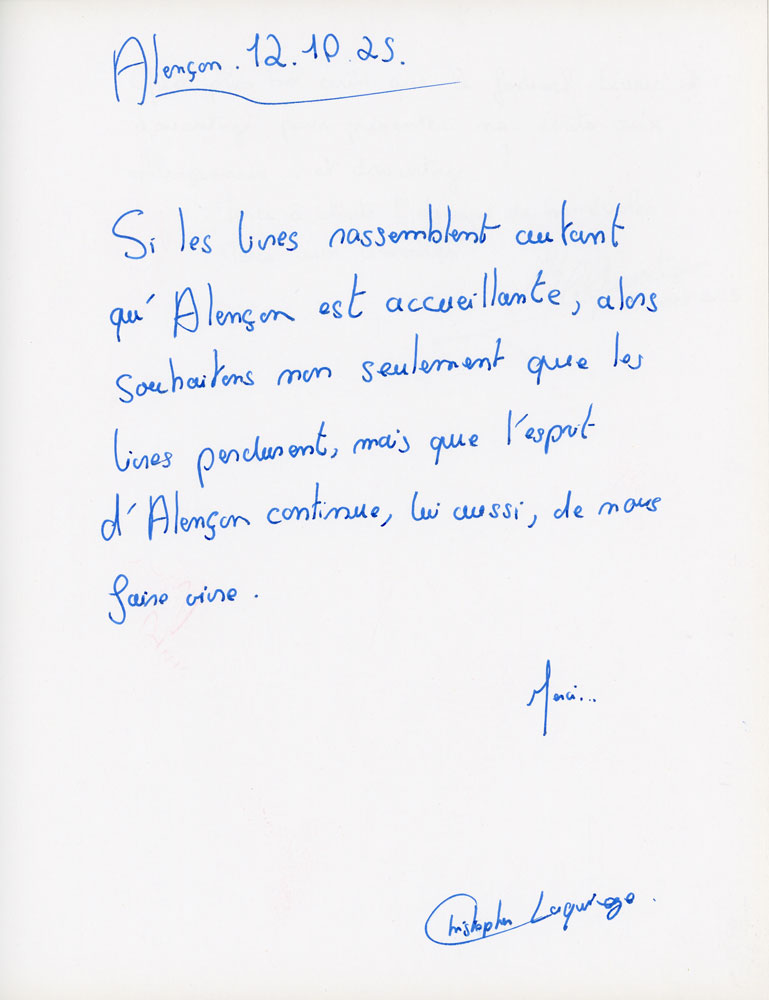 Alençon. 12.10.25.
Si les livres rassemblent autant
qu'Alençon est accueillante, alors
souhaitons non seulement que les
livres perdurent, mais que l'esprit
d'Alençon continue, lui aussi, de nous
faire vivre.
Merci...
Christopher